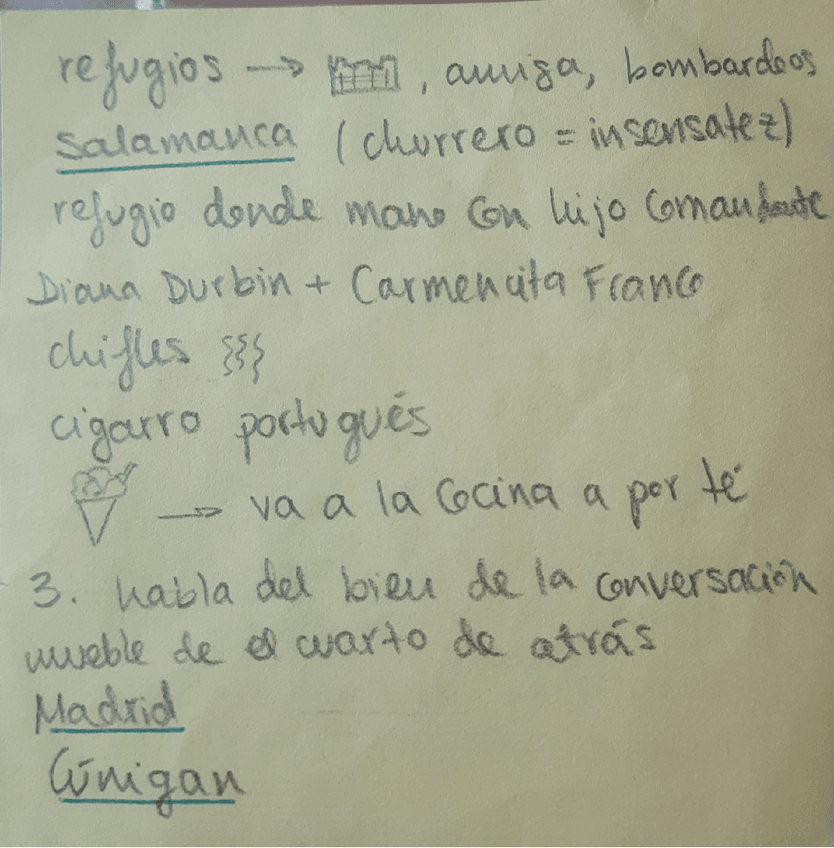 refugios → , amiga, bombardeos
Salamanca (churrero = insensatez)
refugio donde mano con hijo comandante
Diana Durbin + Carmencita Franco
chifles
cigarro portugués
→ va a la cocina a por té
3. habla del bien de la conversación
mueble de el cuarto de atrás
Madrid
Cúnigan